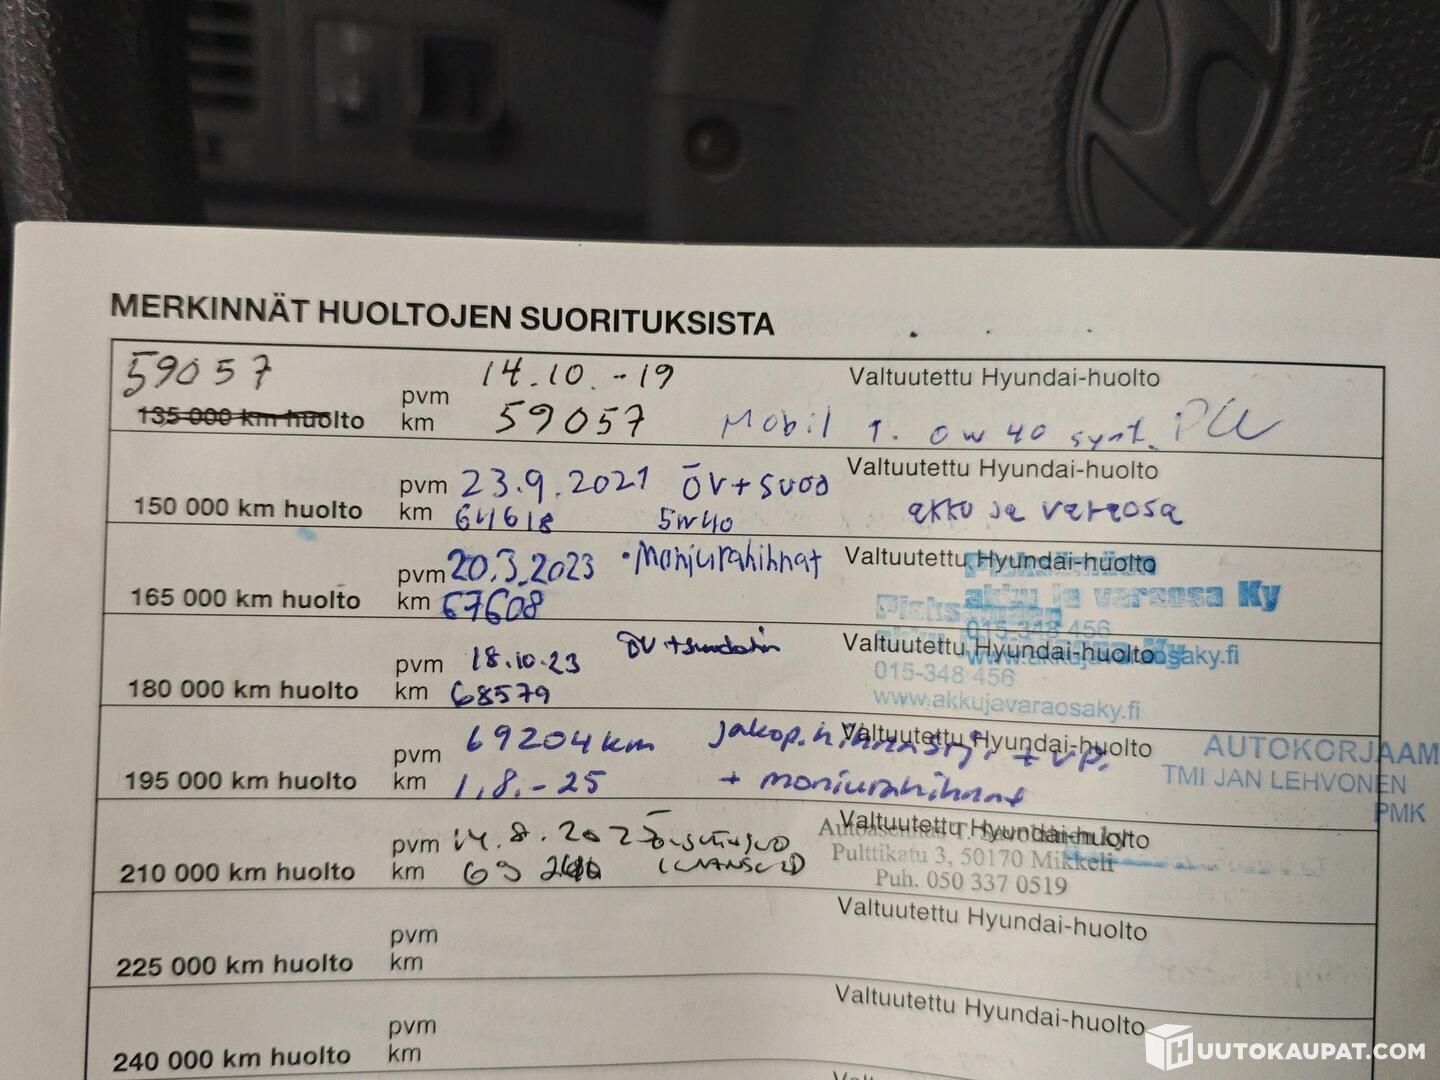 MERKINNÄT HUOLTOJEN SUORITUKSISTA
59057
135 000 km huolto
pvm 14.10.-19
km 59057
Valtuutettu Hyundai-huolto
Mobil 1. 0w40 synt.
150 000 km huolto
pvm 23.9.2021 öv+suod
km 64618 5w40
Valtuutettu Hyundai-huolto
akku ja varaosa
165 000 km huolto
pvm 20.3.2023 •Moniurahihnat
km 67608
Valtuutettu Hyundai-huolto
Pieksämäen
akku ja varaosa Ky
015-348 456
www.akkujavaraosaky.fi
180 000 km huolto
pvm 18.10.23 öv+suodatin
km 68579
Valtuutettu Hyundai-huolto
Pieksämäen
015-348 456
www.akkujavaraosaky.fi
195 000 km huolto
pvm 69204km jakop.hihnasrj + vp.
km 1.8.-25 + moniurahihnat
Valtuutettu Hyundai-huolto
AUTOKORJAAM
TMI JAN LEHVONEN
PMK
210 000 km huolto
pvm 14.8.202
km 69
Valtuutettu Hyundai-huolto
Pulttikatu 3, 50170 Mikkeli
Puh. 050 337 0519
225 000 km huolto
pvm
km
Valtuutettu Hyundai-huolto
240 000 km huolto
pvm
km
Valtuutettu Hyundai-huolto
HUUTOKAUPAT.COM